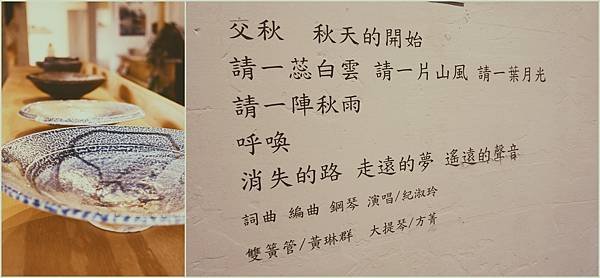 交秋　秋天的開始
請一蕊白雲 請一片山風 請一葉月光
請一陣秋雨
呼喚
消失的路 走遠的夢 遙遠的聲音
詞曲 編曲 鋼琴 演唱/紀淑玲
雙簧管/黃琳群　大提琴/方菁